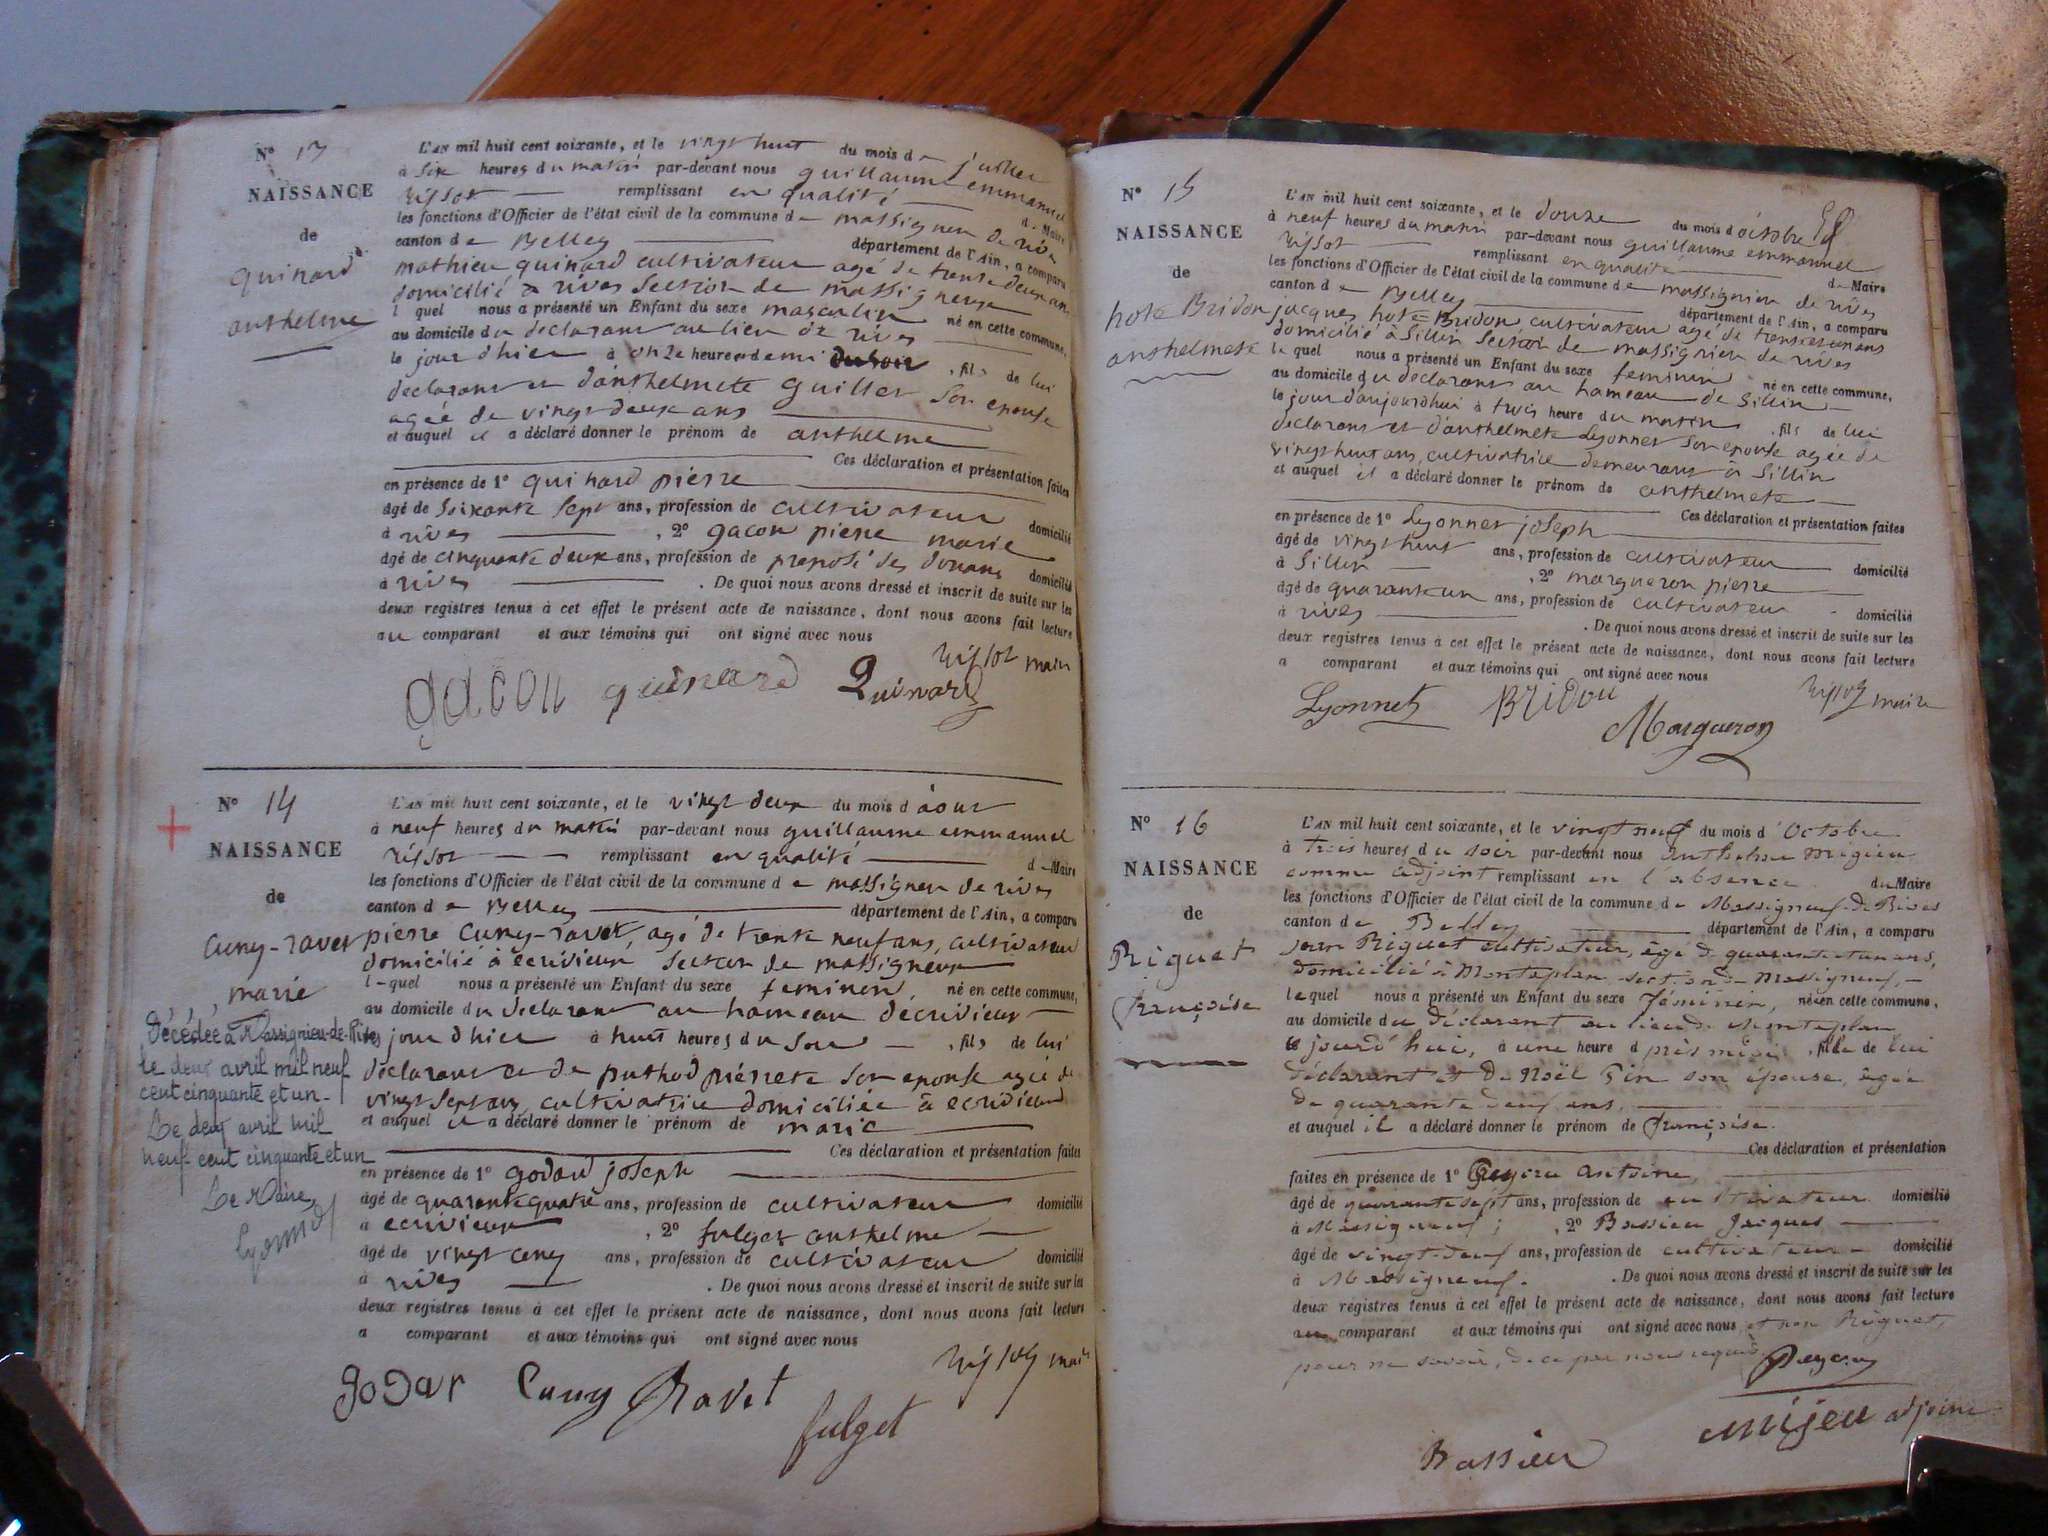 N° 13
NAISSANCE
de
quinard
anthelme
L'AN mil huit cent soixante, et le vingt huit du mois de juillet
à six heures du matin par-devant nous guillaume emmanuel
rissot remplissant en qualité de Maire
les fonctions d'Officier de l'état civil de la commune de massigneu de rives
canton de Belley département de l'Ain, a comparu
mathieu quinard cultivateur agé de trente deux ans
domicilié a rives section de massigneux
lequel nous a présenté un Enfant du sexe masculin né en cette commune,
au domicile du declarant au lieu de rives
le jour d'hier à onze heures demi du soir, fils de lui
declarant et d'anthelmete guillet son epouse
agée de vingt deux ans
et auquel il a déclaré donner le prénom de anthelme
Ces déclaration et présentation faites
en présence de 1° quinard pierre
âgé de soixante sept ans, profession de cultivateur domicilié
à rives, 2° gacon pierre marie
âgé de cinquante deux ans, profession de preposé des douane domicilié
à rives. De quoi nous avons dressé et inscrit de suite sur les
deux registres tenus à cet effet le présent acte de naissance, dont nous avons fait lecture
au comparant et aux témoins qui ont signé avec nous
rissot maire
gacon quinard Quinard
N° 14
NAISSANCE
de
Cuny-ravet
marie
Décédée à Massignieu-de-Rives
le deux avril mil neuf
cent cinquante et un-
Le deux avril mil
neuf cent cinquante et un
Le Maire,
L'AN mil huit cent soixante, et le vingt deux du mois d'aout
à neuf heures du matin par-devant nous guillaume emmanuel
rissot remplissant en qualité de Maire
les fonctions d'Officier de l'état civil de la commune de massigneu de rives
canton de Belley département de l'Ain, a comparu
pierre Cuny-ravet, agé de trente neuf ans, cultivateur
domicilié à ecrivieux section de massigneux
lequel nous a présenté un Enfant du sexe feminen, né en cette commune,
au domicile du declarant au hameau decrivieux
jour d'hier à huit heures du soir, fils de lui
déclarant et de puthod pierrete son epouse agée de
vingt sept ans cultivatrice domiciliée à ecrivieux
et auquel il a déclaré donner le prénom de marie
Ces déclaration et présentation faites
en présence de 1° godard joseph
âgé de quarante quatre ans, profession de cultivateur domicilié
à ecrivieux, 2° fulget anthelme
âgé de vingt cinq ans, profession de cultivateur domicilié
à rives. De quoi nous avons dressé et inscrit de suite sur les
deux registres tenus à cet effet le présent acte de naissance, dont nous avons fait lecture
a comparant et aux témoins qui ont signé avec nous
rissot maire
godar Cuny Ravet
fulget
N° 15
NAISSANCE
de
hote Bridon
anthelmete
L'AN mil huit cent soixante, et le douze du mois d'octobre
à neuf heures du matin par-devant nous guillaume emmanuel
rissot remplissant en qualité de Maire
les fonctions d'Officier de l'état civil de la commune de massignieu de rives
canton de Belley département de l'Ain, a comparu
jacques hote=Bridon cultivateur agé de
domicilié à Sillin section de massignieu de rives
lequel nous a présenté un Enfant du sexe feminin né en cette commune,
au domicile du declarant au hameau de Sillin
le jour d'aujourd'hui à trois heure du matin, fils de lui
declarant et d'anthelmete Lyonnet son epouse agée de
vingt huit ans, cultivatrice demeurant à Sillin
et auquel il a déclaré donner le prénom de anthelmete
Ces déclaration et présentation faites
en présence de 1° Lyonnet joseph
âgé de vingt huit ans, profession de cultivateur domicilié
à Sillin, 2° margueron pierre
âgé de quarante un ans, profession de cultivateur domicilié
à rives. De quoi nous avons dressé et inscrit de suite sur les
deux registres tenus à cet effet le présent acte de naissance, dont nous avons fait lecture
a comparant et aux témoins qui ont signé avec nous
rissot maire
Lyonnet Bridon
Margueron
N° 16
NAISSANCE
de
Riguet
Françoise
L'AN mil huit cent soixante, et le vingt neuf du mois d'Octobre
à trois heures du soir par-devant nous Anthelme Migieu
comme adjoint remplissant en l'absence du Maire
les fonctions d'Officier de l'état civil de la commune de Massigneux-de-Rives
canton de Belley département de l'Ain, a comparu
Jean Riguet cultivateur, âgé de quarante et un ans,
domicilié à Monteplan section de Massigneux,
lequel nous a présenté un Enfant du sexe féminin, né en cette commune,
au domicile du déclarant au lieu de Monteplan
jourd'hui, à une heure d'près midi, fille de lui
déclarant et de son épouse, âgée
de quarante deux ans,
et auquel il a déclaré donner le prénom de Françoise.
Ces déclaration et présentation
faites en présence de 1° Antoine,
âgé de quarante sept ans, profession de cultivateur domicilié
à Massigneux; 2° Bassieu Jacques
âgé de vingt-deux ans, profession de cultivateur domicilié
à Massigneux. De quoi nous avons dressé et inscrit de suite sur les
deux registres tenus à cet effet le présent acte de naissance, dont nous avons fait lecture
au comparant et aux témoins qui ont signé avec nous et non Riguet,
pour ne savoir, de ce par nous requis
Mijeu adjoint
Bassieu